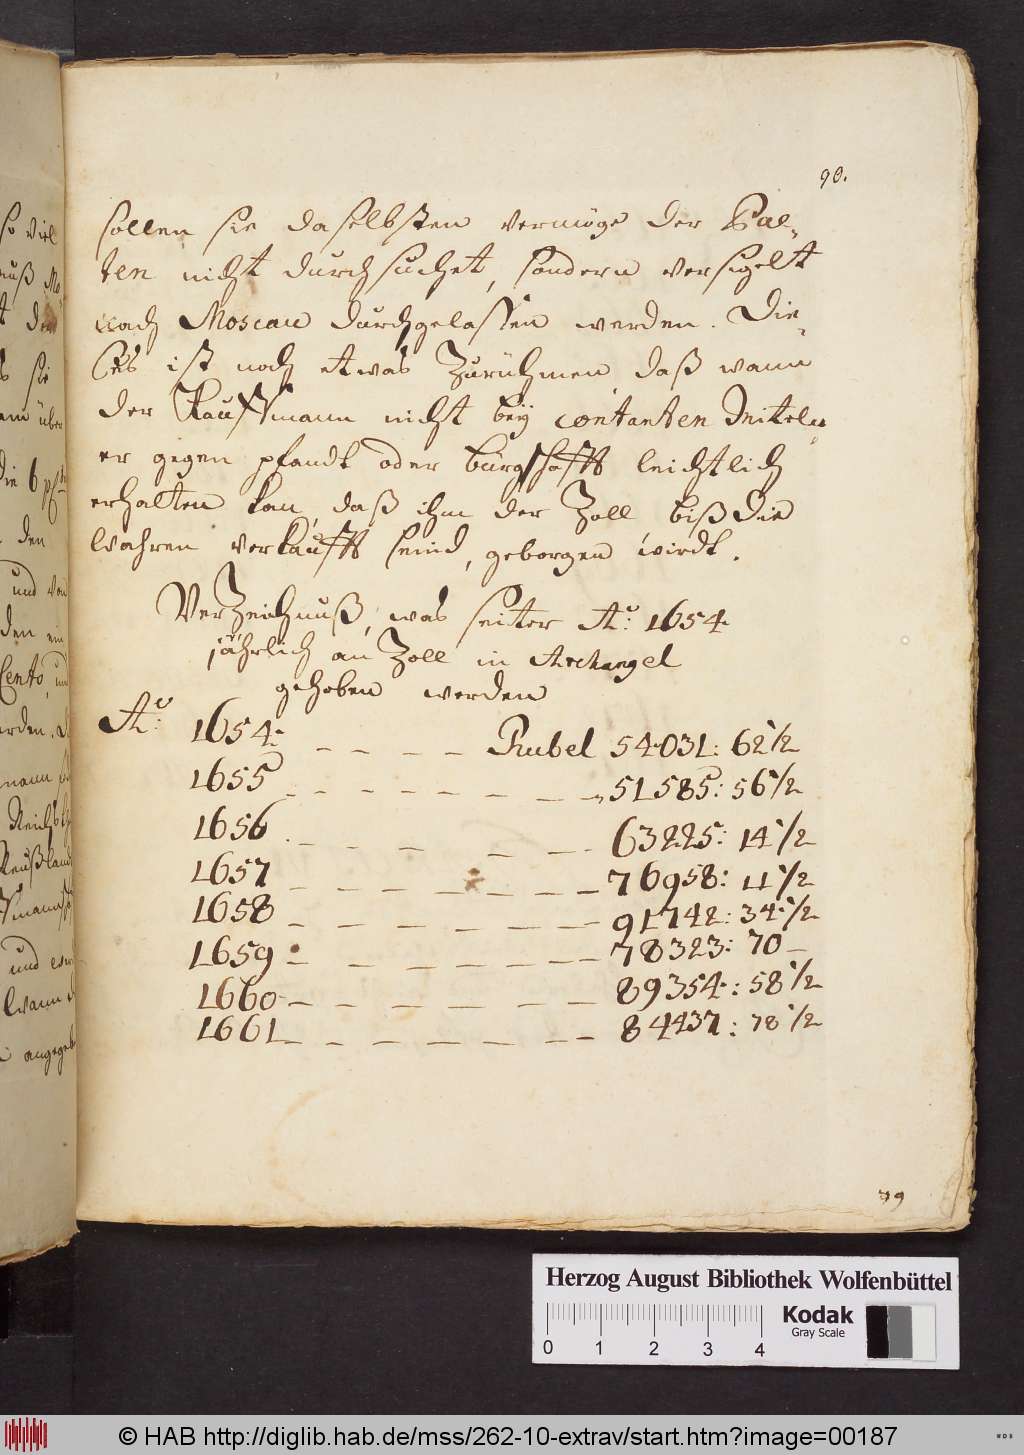 90.
sollen sie daselbsten vermöge der Pal-
ten nicht durchsuchet, sondern versigelt
nach Moscau durchgelassen werden. Die-
ses ist noch etwas Zurühmen daß wann
der Kauffmann nicht beÿ contanten Mitteln
er gegen pfandt oder bürgschafft leichtlich
erhalten kan, daß ihm der Zoll biß die
Wahren verkaufft seind, geborgen wirdt.
VerZeichnuß, was seiter Aº: 1654
jährlich an Zoll in Archangel
gehoben werden
Aº: 1654 - - - - Rubel 54031: 62 1/2
1655 - - - - - - - - 51585: 56 1/2
1656 - - - - - 63225: 14 1/2
1657 - - - - - - - 76958: 11 1/2
1658 - - - - - - - 91742: 34 1/2
1659 - - - - - - - 78323: 70 -
1660 - - - - - - - 89354: 58 1/2
1661 - - - - - - - 84437: 78 1/2
79
so viel
die 6
den
und von
den ein
Cento, und
und
angegeb
Herzog August Bibliothek Wolfenbüttel
Kodak
Gray Scale
0 1 2 3 4
© HAB http://diglib.hab.de/mss/262-10-extrav/start.htm?image=00187